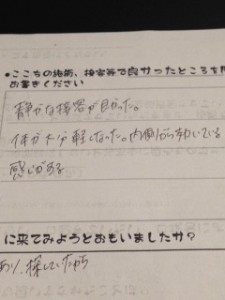 •ここちの施術、接客等で良かったところを
お書きください
静かな接客が良かった。
体が大分軽くなった。内側から動いている
感じがする
に来てみようとおもいましたか?
あり、探していたから